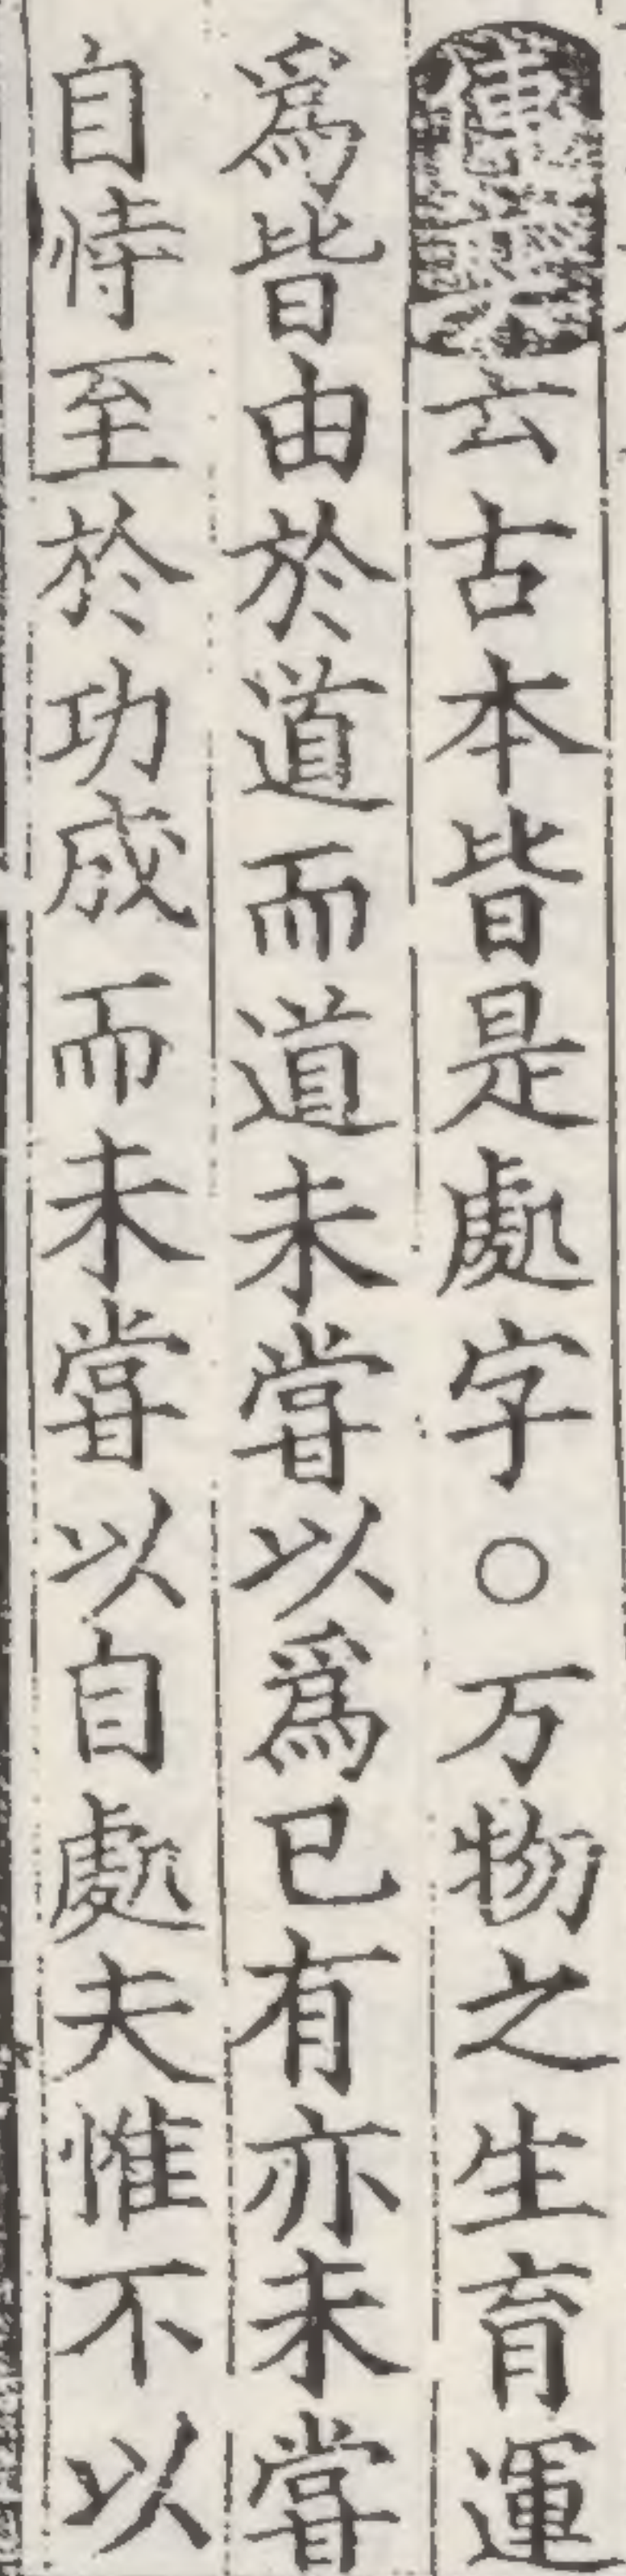 傅奕云古本皆是處字○万物之生育運
爲皆由於道而道未甞以爲已有亦未甞
自恃至於功成而未甞以自處夫惟不以